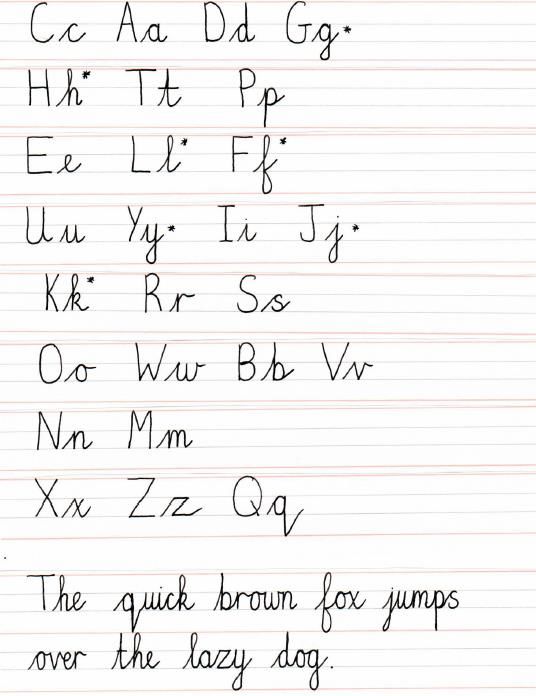 Cc Aa Dd Gg*
Hh* Tt Pp
Ee Ll* Ff*
Uu Yy* Ii Jj*
Kk* Rr Ss
Oo Ww Bb Vv
Nn Mm
Xx Zz Qq
The quick brown fox jumps
over the lazy dog.